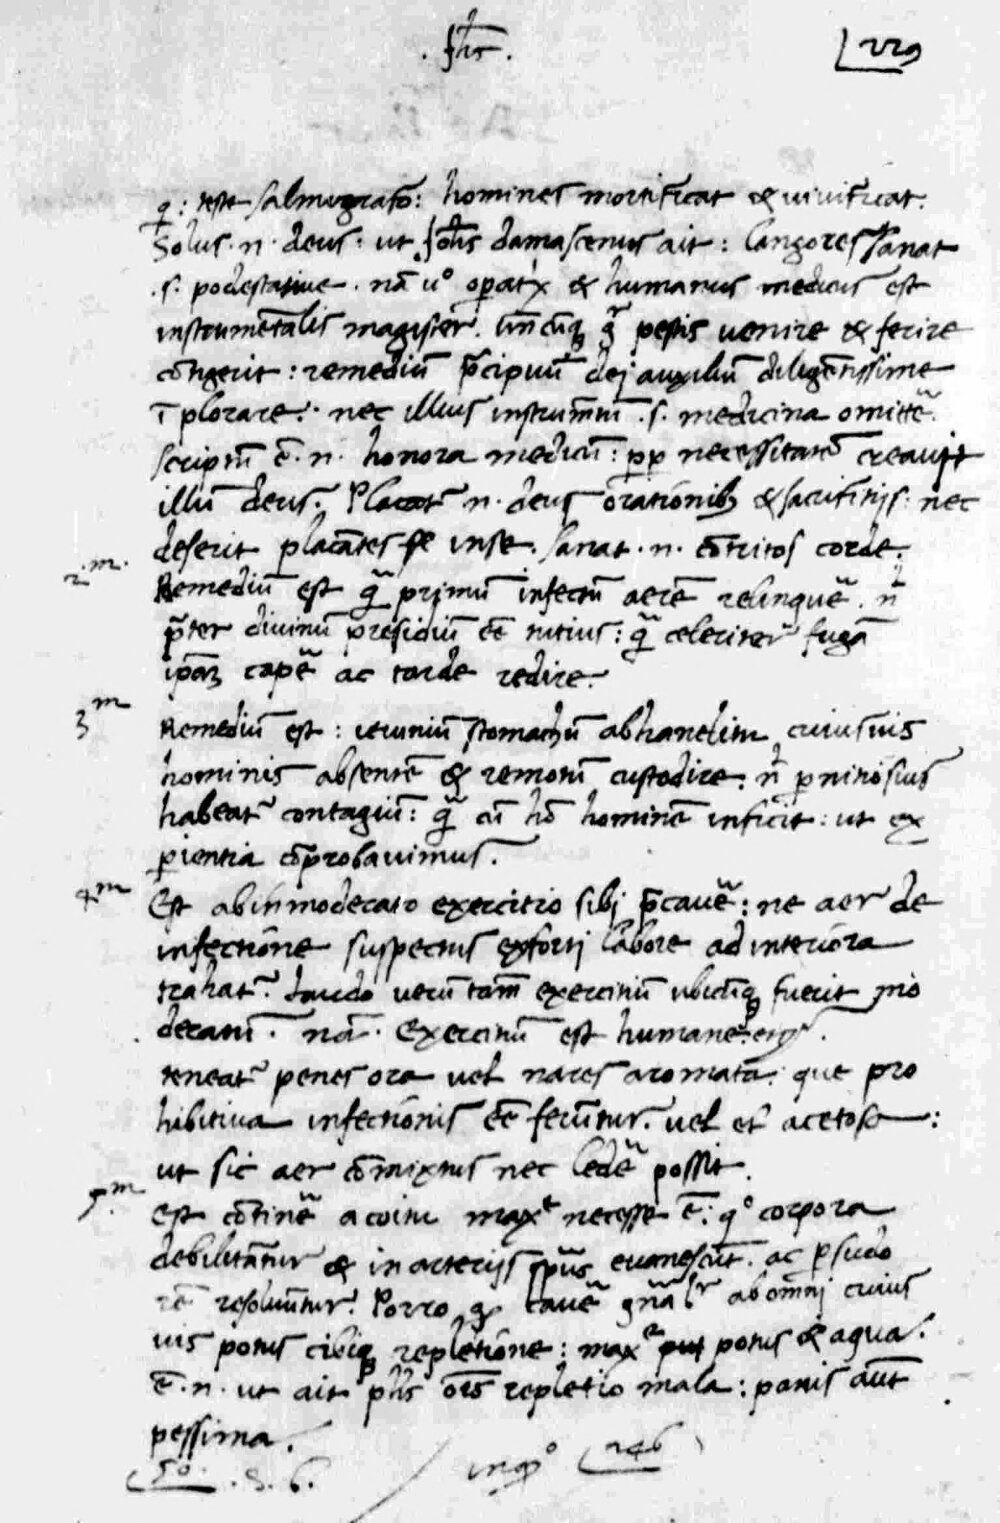 . Jhs .
229
q: teste salmugrafo: homines mortificat & uiuificat.
Solus · n · deus: ut Johis damascenus ait: langores sanat
· s · podestatiue · nā u° operatx & humanus medicus est
instrumētalis magister. Uñcūq g̃ pestis uenire & ferire
cōtigerit: remediū p̄cipuū dej auxiliū diligētissime
īplorare: nec illius instrum̄tū · s · medicina omitte~.
scriptū ē · n · honora medicū: pp necessitatē creauit
illū deus. Placat~ n · deus orationib3 & sacrifitijs: nec
deserit placātes se inse. sanat · n · cōtritos corde.
2.m. Remediū est q̃ primū infectū aerē relinque~.
p̄ter diuinū presidiū eē tutius: q̃ celeriter fugā
ipā3 cape~ ac tarde redire.
3m Remediū est: ieiuniū stomachū abhanelitu cuiusuis
hominis absentē & remotū custodire: perninosius
habeat~ contagiū: q̃ cū hō hominē inficit: ut ex
perientia cōprobauimus.
4m Est abinmoderato exercitio sibj p̄caue~: ne aer de
infectiōne suspectus exfortj labore ad interiōra
trahat~. Laudo uerū tam̄ exercitiū ubicūq fuerit mo
deratū. nā. Exercitiū est humane
teneat~ penes ora uel nares aromata: que pro
hibitiua infectiōnis eē ferūtur. uel et acetosa:
ut sic aer cōmixtus nec lede~ possit.
5.m Est cōtine~ acoitu maxe necesse ē: q° corpora
debilitātur & in arterijs spūs euanescūt. ac p sudo
rē resoluūtur. Porro caue~ gnalr abomnj cuius
uis potus cibiq repletiōne: maxe potus & aqua.
ē · n · ut ait phs oīs repletio mala: panis aūt
pessima.
5°. . S. 6. inqo 246